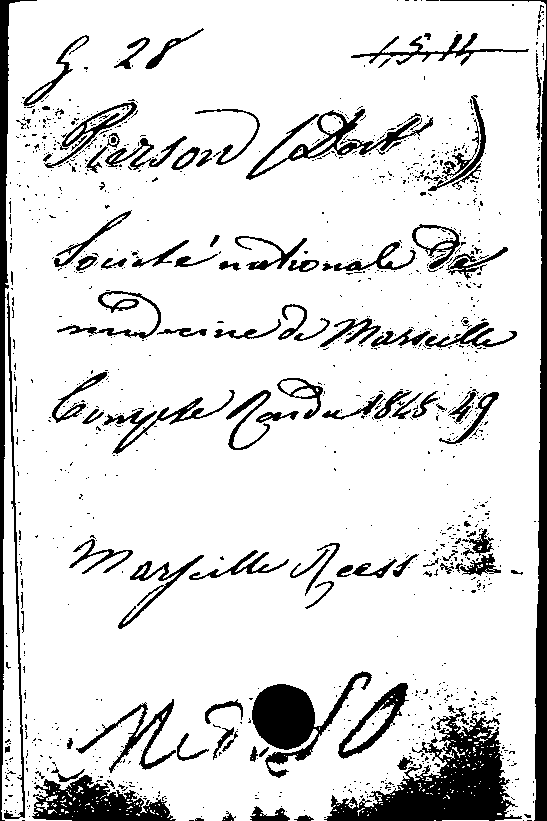 G. 28 1,5,14
Pierson (Doct)
Société nationale de
médecine de Marseille
Compte Rendu 1848-49
Marseille
Med